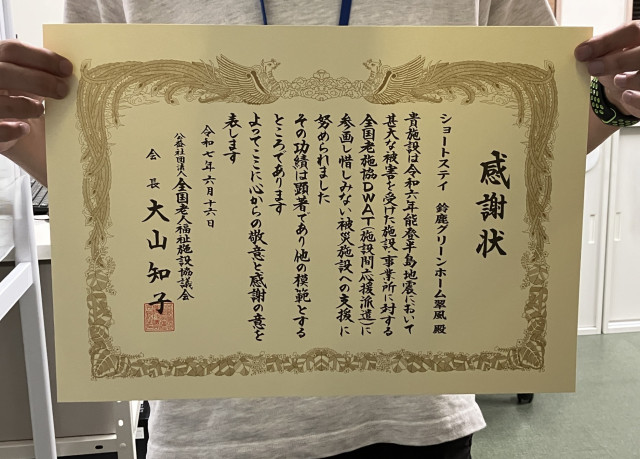 感謝状
ショートステイ 鈴鹿グリーンホーム翠風 殿
貴施設は令和六年能登半島地震において
甚大な被害を受けた施設、事業所に対する
全国老施協DWAT(施設間応援派遣)に
参画し惜しみない被災施設への支援に
努められました
その功績は顕著であり他の模範とする
ところであります
よってここに心からの敬意と感謝の意を
表します
令和七年六月十六日
公益社団法人 全国老人福祉施設協議会
会長 大山知子